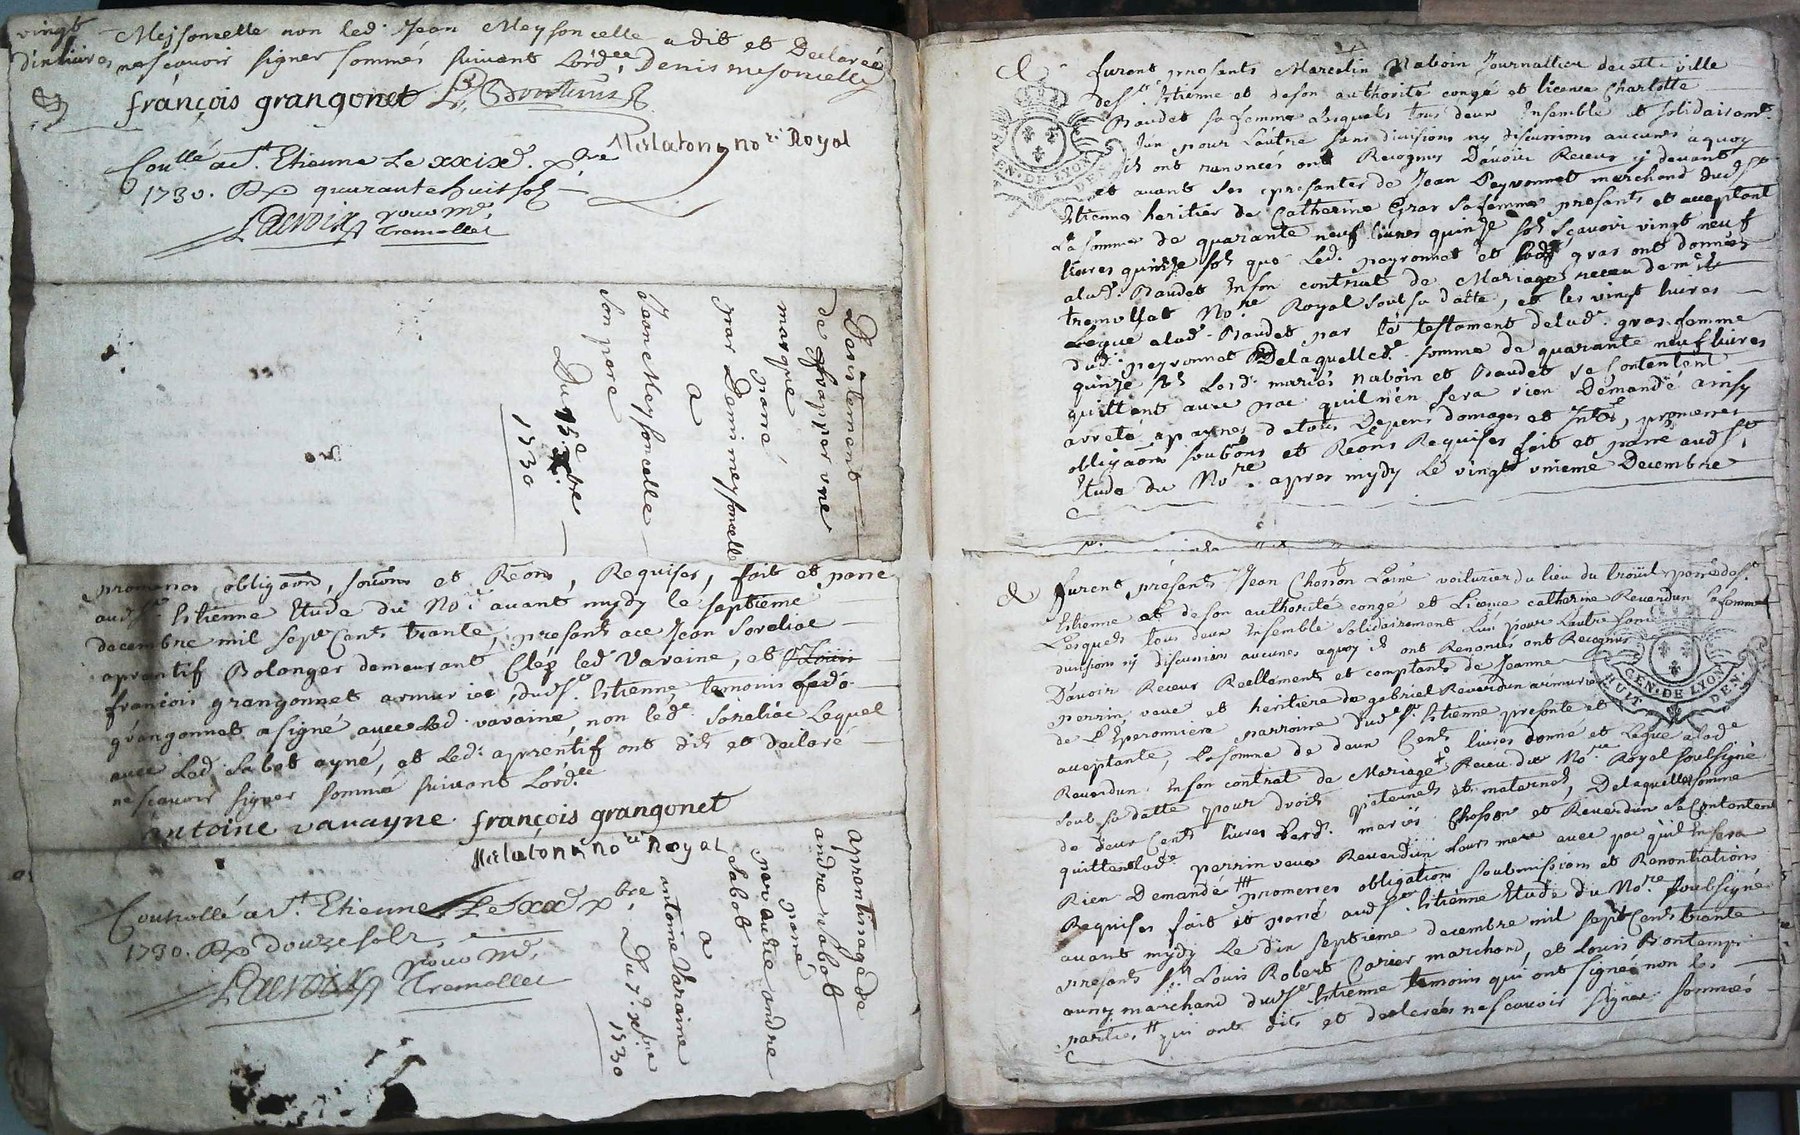 vingt
dix livres
Meysoncelle non led. Jean Meysoncelle a dit et Declaré
ne scavoir signer sommés suivant Lord.ce, Denis mesoncelle
françois grangonet
Meslaton no.re Royal
Con.llé a S.t Etienne Le xxixe xbre
1730. R quarante huit sols
Lacroix
Tremollet
Desistement
de frapper une
marque
passé
par Denis meysoncelle
a
Jean Meysoncelle
son pere
Du 15e xbre
1730
promesses obligaons, soubons et Reons, Requises, fait et passé
aud. S.t Estienne Etude du No.re avant mydy le septieme
decembre mil sept Cents trante, presents ace Jean Soreliac
aprentif Bolanger demeurant Chez led. Varaine, et
françois grangonnet armurier dud. S.t Estienne temoins
grangonnet a signé avec led. varaine, non led. Soreliac Lequel
avec Led. Sabot ayné, et Led. aprentif ont dit et declaré
ne scavoir signer sommés suivant Lord.ce
antoine varayne françois grangonet
Meslaton no.re Royal
Controllé a S.t Etienne Le xbre
1730. R Douze sols
Lacroix
Tremollet
Aprentissage de
andre Sabot
passé
par autre andre
Sabot
a
antoine Varaine
Du 7e xbre
1730
& furent presents Marcelin Naboin Journallier de cette ville
de S.t Estienne et de son authorité congé et licence Charlotte
Baudet sa femme Lesquels tous deux Ensemble et solidairem.t
Lun pour Lautre sans divisions ny discussions aucunes aquoy
ils ont renoncés ont Recognus Davoir Receus cy devant
et avant ses presentes de Jean Peyronnet marchand dud. S.t
Estienne heritier de Catherine Gras sa femme presents et acceptant
La somme de quarante neuf livres quinze sols scavoir vingt neuf
livres quinze sols que Led. peyronnet et lad. gras ont donnés
alad. Baudet En son contrat de Mariage receu de me
tremollat No.re Royal soubs sa datte, et les vingt livres
Legué alad. Baudet par le testament delad. gras femme
dud. peyronnet Delaquelle d. somme de quarante neuf livres
quinze sols Lesd. mariés naboin et Baudet se Contentent
quittent avec pac quil n'en sera rien Demandé ainsy
arreté apaynes de tous Depens domages et Intes, promesses
obligaons soubons et Reons Requises fait et passé aud. S.t
Etude du No.re apres mydy Le vingt unieme Decembre
& furent présents Jean Chosson Lainé voiturier du lieu du troüil parroisse de S.t
Estienne et de son authorité congé et Licence catherine Reverdun sa femme
Lesquels tous deux Ensemble solidairement Lun pour Lautre sans
divisions ny discussions aucunes aquoy ils ont Renoncés ont Recognus
Davoir Receus Reellements et comptants de Jeanne
perrin veuve et heritiere de gabriel Reverdun armurier
de L'Eperonniere parroisse dud. S.t Estienne presente et
acceptante, La somme de deux Cents livres donné et Legué alad.
Reverdun En son contrat de Mariage Receu du No.re Royal soubsigné
soub sa datte pour droits paternels et maternels, Delaquelle somme
de deux Cents livres Lesd. mariés Chosson et Reverdun se Contentent
quittent lad. perrin veuve Reverdun Leurs mere avec pac quil En sera
Rien Demandé promesses obligations soubmissions et Renontiations
Requises fait et passé aud. S.t Estienne Etude du No.re soubsigné
avant mydy Le dix septieme decembre mil sept Cents trante
presents S.r Louis Robert Carrier marchand, et Louis Bontemps
aussy marchand dud. S.t Estienne temoins qui ont signé non les
parties qui ont dit et declarés ne scavoir signer sommés
GEN. DE LYON
HUIT DEN.
GEN. DE LYON
HUIT DEN.